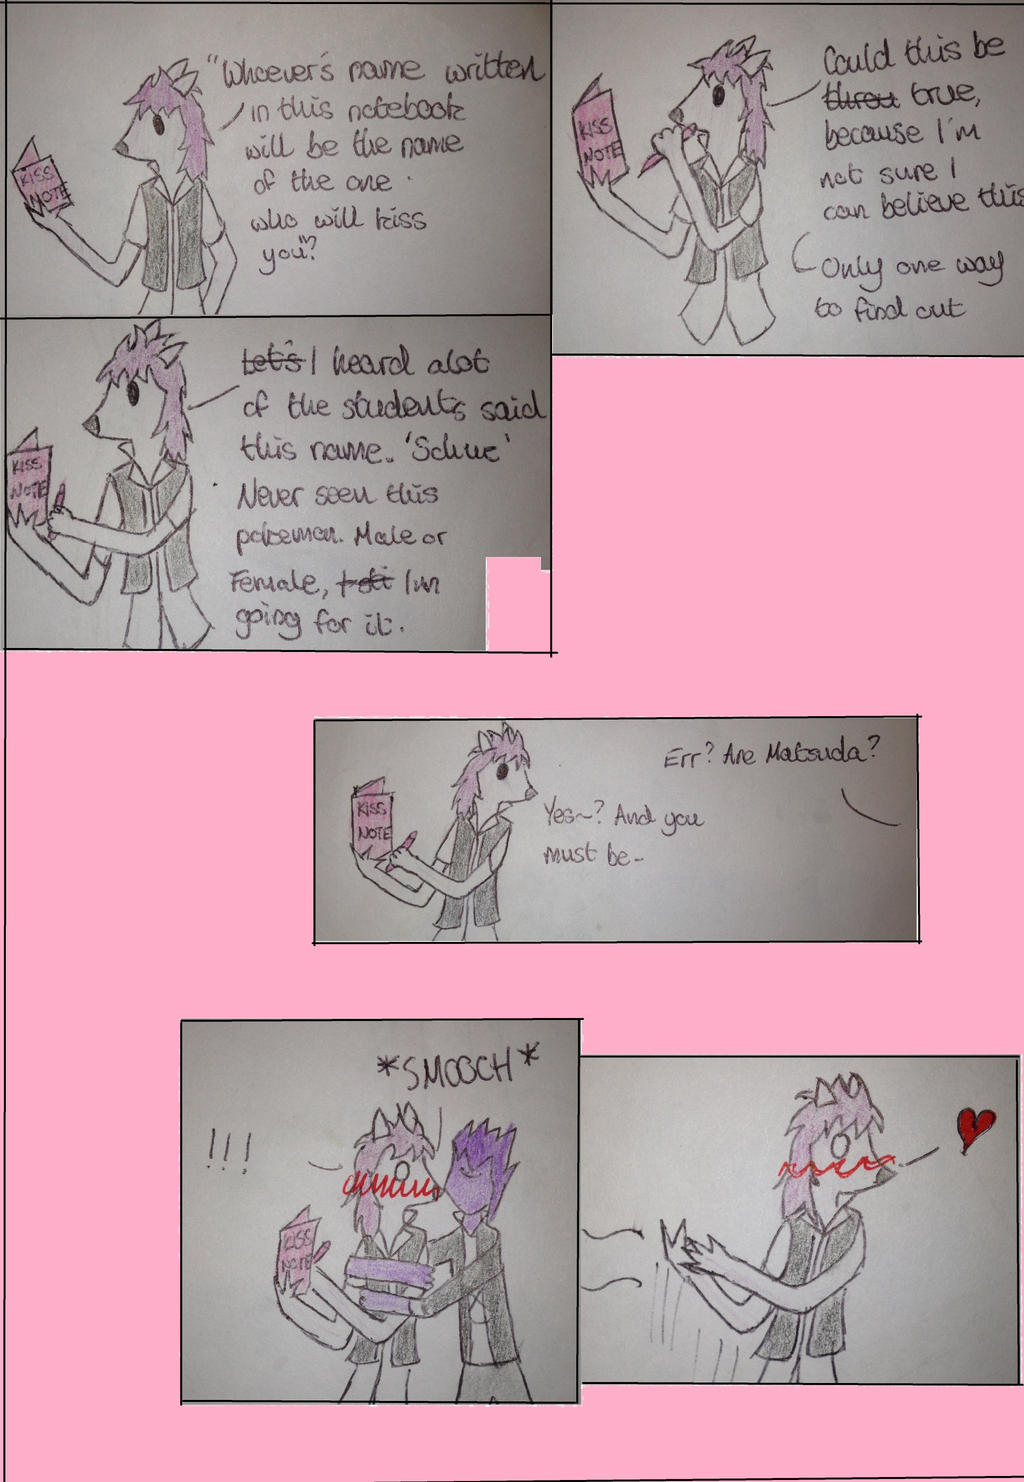 "Whoever's name written
in this notebook
will be the name
of the one
who will kiss
you"?
KISS
NOTE
Could this be
true,
because I'm
not sure I
can believe this
Only one way
to find out
KISS
NOTE
Let's I heard alot
of the students said
this name.. '
Never seen this
pokemon. Male or
Female, I'm
going for it.
KISS
NOTE
Err? Are Matsuda?
Yes~? And you
must be-
KISS
NOTE
*SMOOCH*
!!!
KISS
NOTE